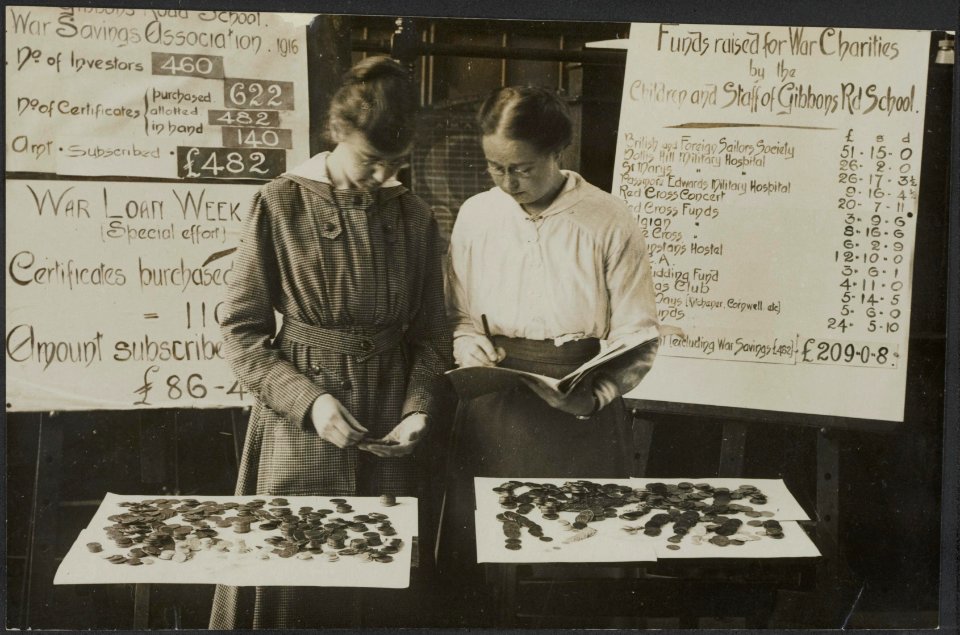 Gibbons Road School.
War Savings Association. 1916
No of Investors 460
No of Certificates
purchased 622
allotted 482
in hand 140
Amt. Subscribed. £482
War Loan Week
(Special effort)
Certificates purchased
= 11
Amount subscribe
£86-4
Funds raised for War Charities
by the
Children and Staff of Gibbons Rd School.
£ s d
British and Foreign Sailors Society 51-15-0
Dollis Hill Military Hospital 26-2-0
St Marys " " 26-17-3½
Passmore Edwards Military Hospital 9-16-4½
Red Cross Concert 20-7-11
Red Cross Funds 3-9-6
lgian " 8-16-6
Cross " 6-2-9
nstans Hostel 12-10-0
.A. 3-6-1
udding Fund 4-11-0
as Club 5-14-5
Days (Kitchener, Cornwell. etc) 5-6-0
unds 24-5-10
(excluding War Savings £482) £209-0-8